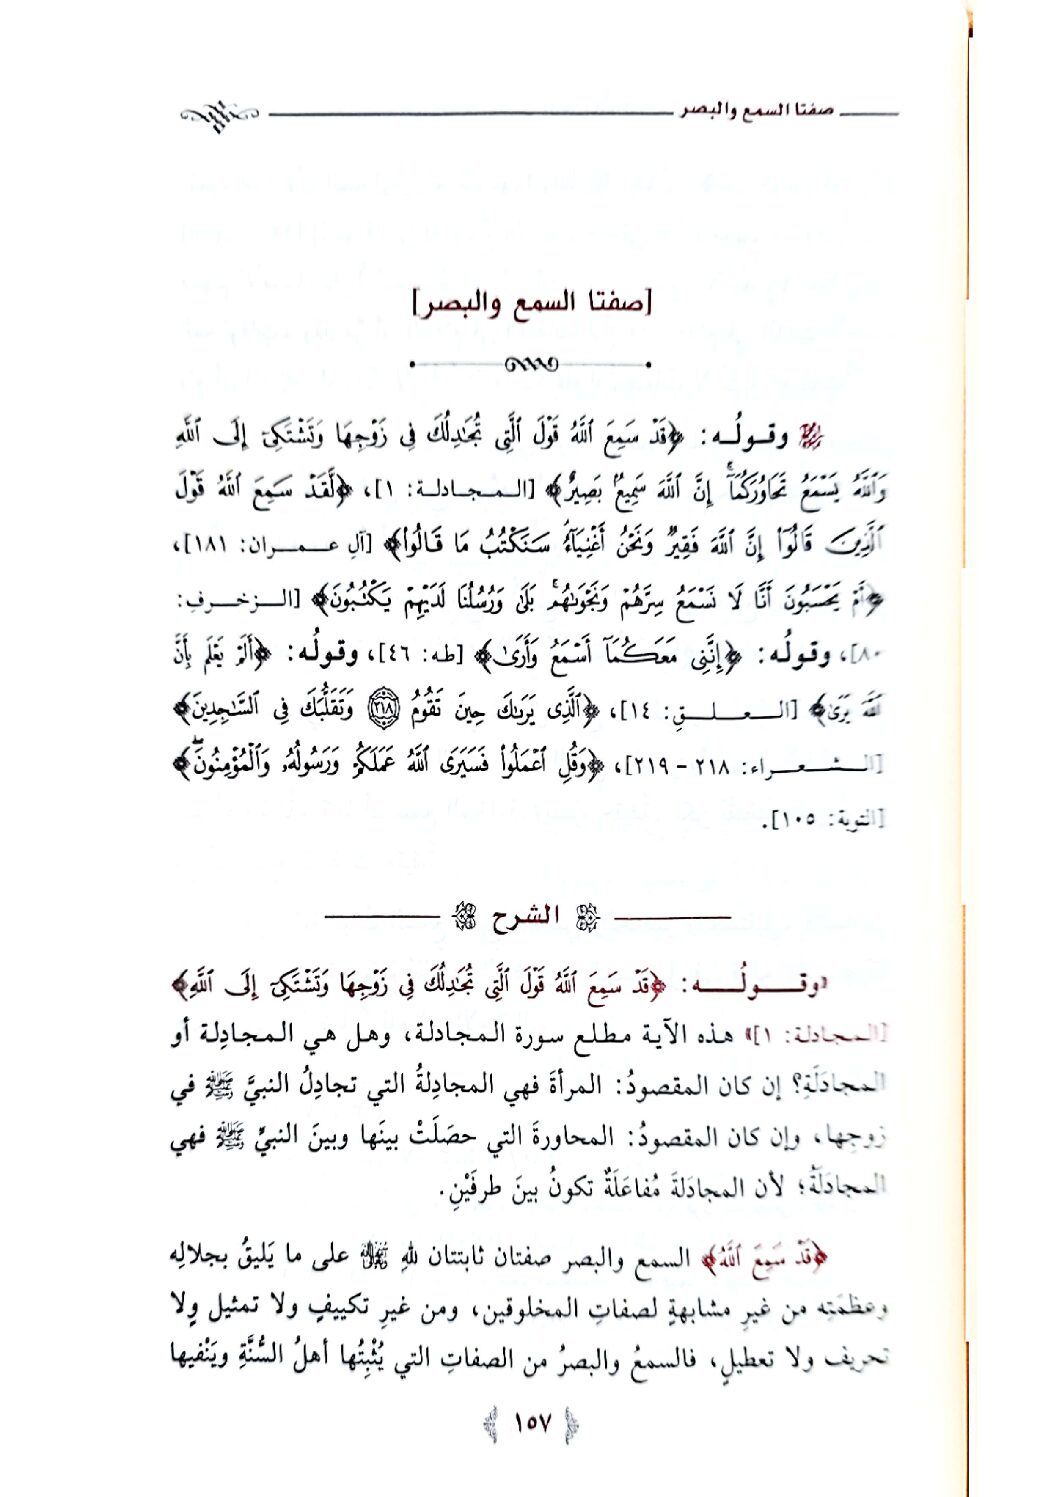 صفتا السمع والبصر
[صفتا السمع والبصر]
وقولُه: ﴿قَدْ سَمِعَ ٱللَّهُ قَوْلَ ٱلَّتِى تُجَٰدِلُكَ فِى زَوْجِهَا وَتَشْتَكِىٓ إِلَى ٱللَّهِ
وَٱللَّهُ يَسْمَعُ تَحَاوُرَكُمَآ ۚ إِنَّ ٱللَّهَ سَمِيعٌۢ بَصِيرٌ﴾ [المجادلة: ١]، ﴿لَّقَدْ سَمِعَ ٱللَّهُ قَوْلَ
ٱلَّذِينَ قَالُوٓا۟ إِنَّ ٱللَّهَ فَقِيرٌ وَنَحْنُ أَغْنِيَآءُ ۘ سَنَكْتُبُ مَا قَالُوا۟﴾ [آلِ عمران: ١٨١]،
﴿أَمْ يَحْسَبُونَ أَنَّا لَا نَسْمَعُ سِرَّهُمْ وَنَجْوَىٰهُم ۚ بَلَىٰ وَرُسُلُنَا لَدَيْهِمْ يَكْتُبُونَ﴾ [الزخرف:
٨٠]، وقولُه: ﴿إِنَّنِى مَعَكُمَآ أَسْمَعُ وَأَرَىٰ﴾ [طه: ٤٦]، وقولُه: ﴿أَلَمْ يَعْلَم بِأَنَّ
ٱللَّهَ يَرَىٰ﴾ [العلق: ١٤]، ﴿ٱلَّذِى يَرَىٰكَ حِينَ تَقُومُ ٢١٨ وَتَقَلُّبَكَ فِى ٱلسَّٰجِدِينَ﴾
[الشعراء: ٢١٨ - ٢١٩]، ﴿وَقُلِ ٱعْمَلُوا۟ فَسَيَرَى ٱللَّهُ عَمَلَكُمْ وَرَسُولُهُۥ وَٱلْمُؤْمِنُونَ ۖ﴾
[التوبة: ١٠٥].
الشرح
«وقولُه: ﴿قَدْ سَمِعَ ٱللَّهُ قَوْلَ ٱلَّتِى تُجَٰدِلُكَ فِى زَوْجِهَا وَتَشْتَكِىٓ إِلَى ٱللَّهِ﴾
[المجادلة: ١]» هذه الآية مطلع سورة المجادلة، وهل هي المجادِلة أو
المجادَلَةِ؟ إن كان المقصودُ: المرأةَ فهي المجادِلةُ التي تجادِلُ النبيَّ ﷺ في
زوجِها، وإن كان المقصودُ: المحاورةَ التي حصَلَتْ بينَها وبينَ النبيِّ ﷺ فهي
المجادَلَةُ؛ لأن المجادَلةَ مُفاعَلَةٌ تكونُ بينَ طرفَيْنِ.
﴿قَدْ سَمِعَ ٱللَّهُ﴾ السمع والبصر صفتان ثابتتان للهِ ﷻ على ما يَليقُ بجلالِه
وعظمَتِه من غيرِ مشابهةٍ لصفاتِ المخلوقين، ومن غيرِ تكييفٍ ولا تمثيل ولا
تحريف ولا تعطيلٍ، فالسمعُ والبصرُ من الصفاتِ التي يُثبِتُها أهلُ السُّنَّةِ ويَنْفيها
١٥٧